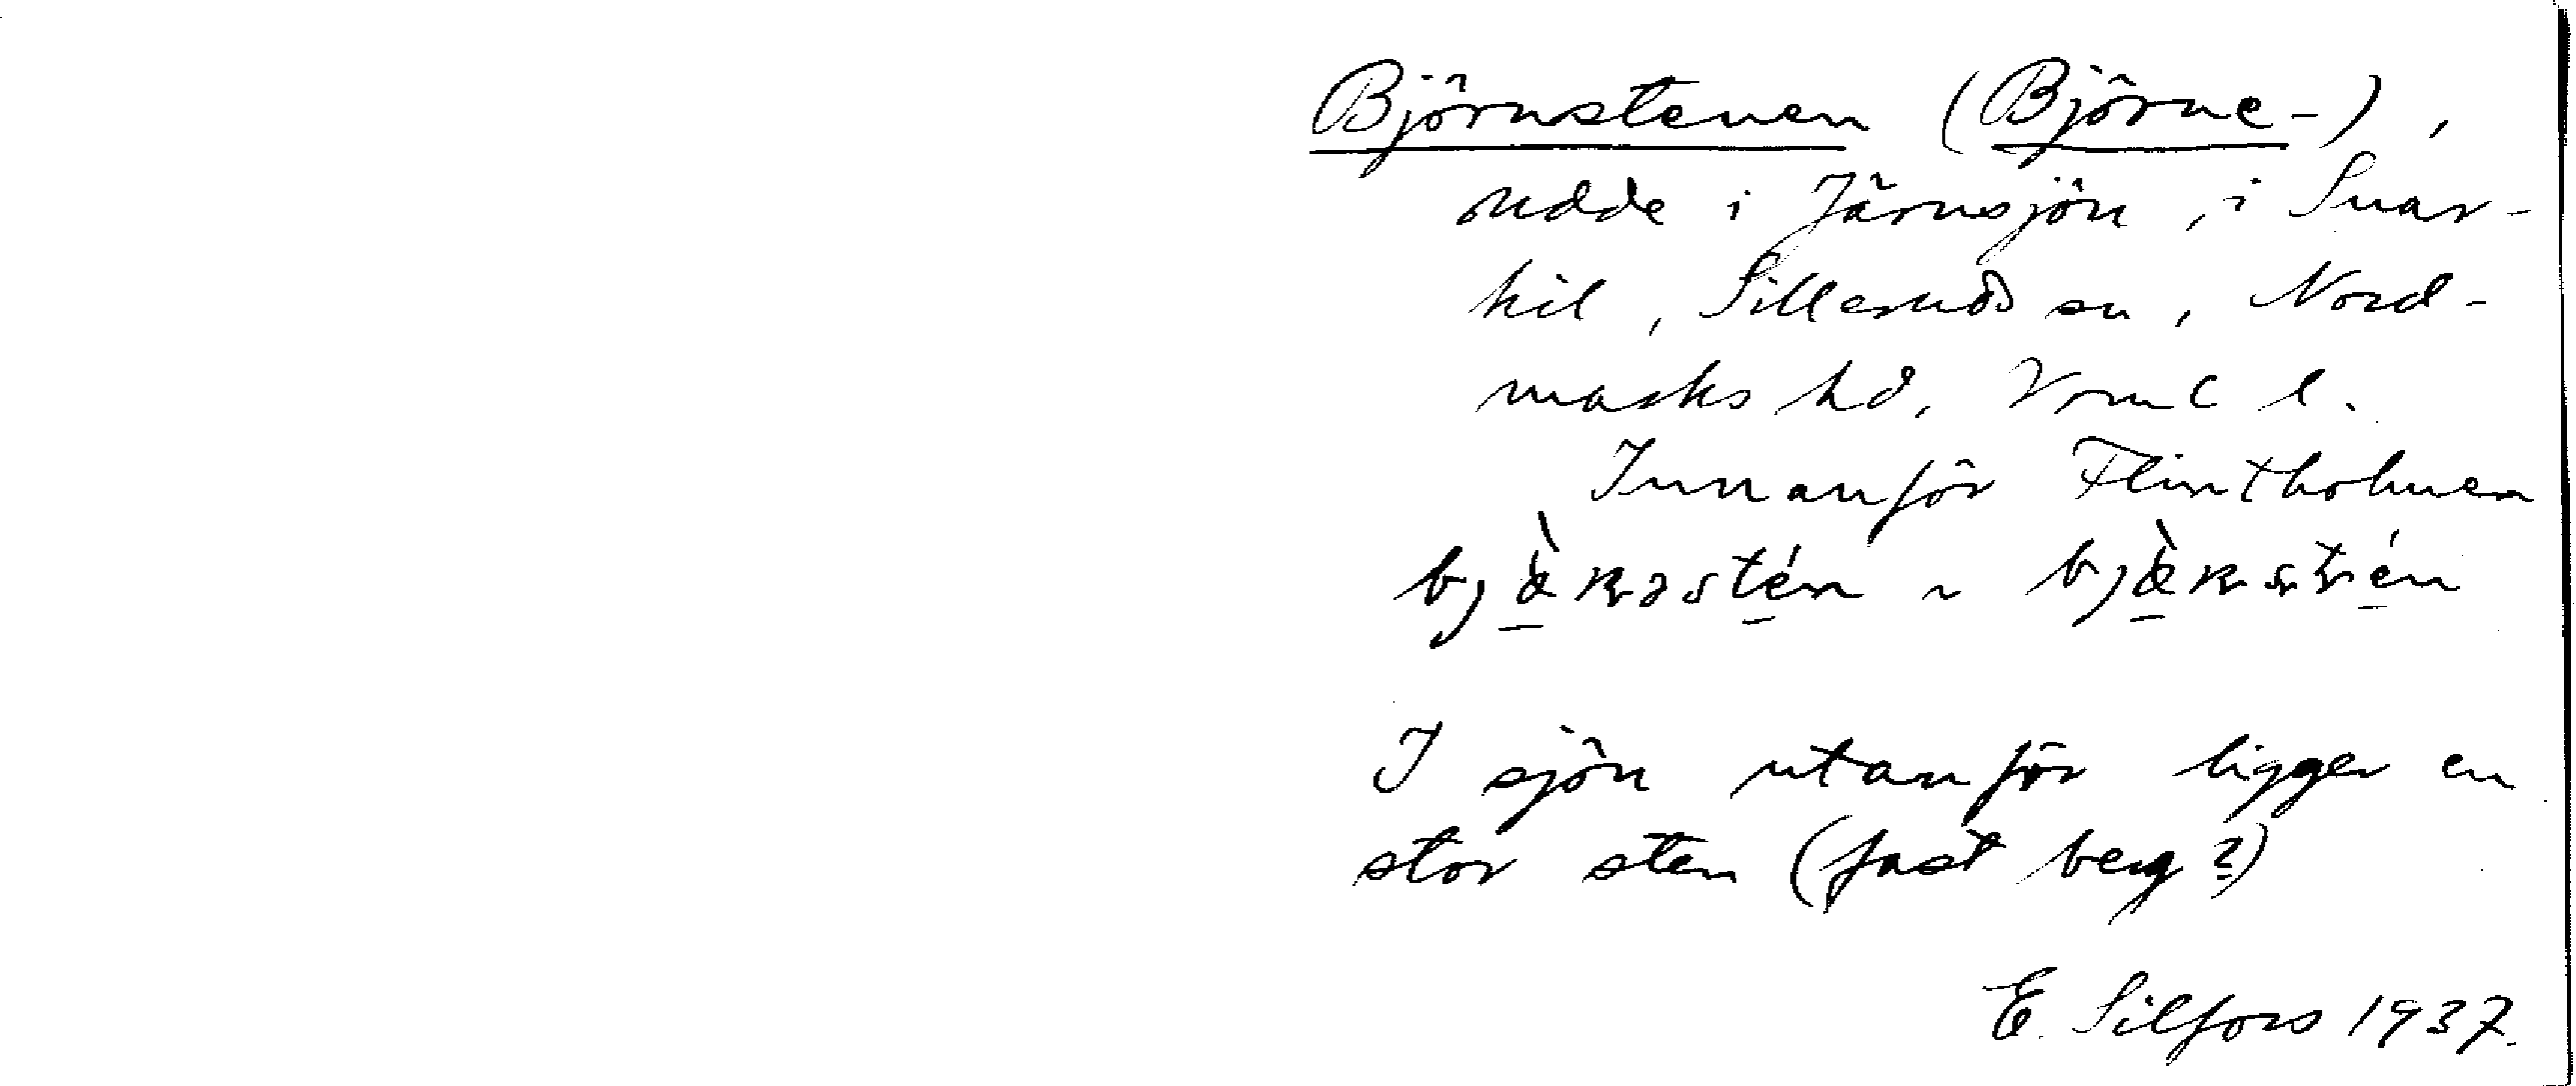 Björnstenen (Björne-),
udde i Järnsjön, i Snar-
kil, Sillerud sn, Nord-
marks hd, Vrml l.
Innanför Flintholmen
I sjön utanför ligger en
stor sten (fast berg?)
E. Silfors 1937.